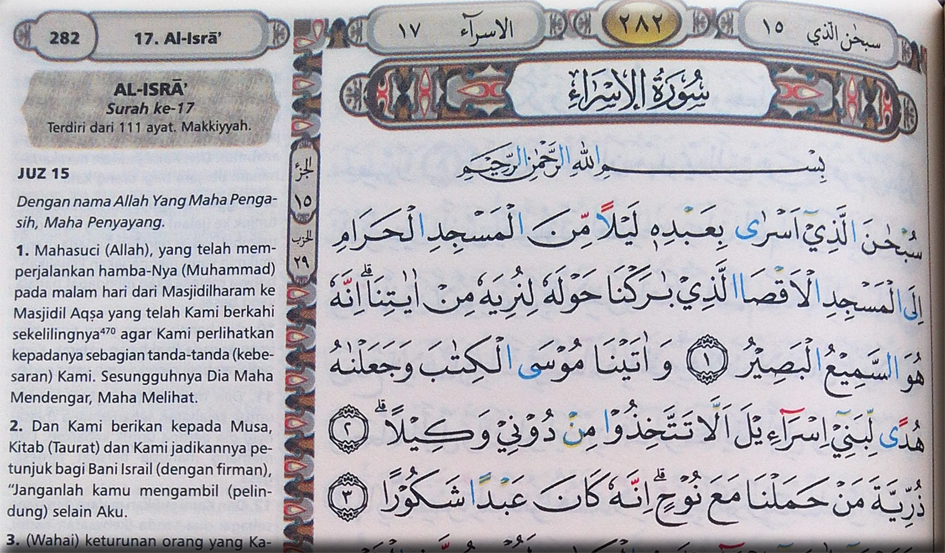 282
17. Al-Isrā’
AL-ISRĀ’
Surah ke-17
Terdiri dari 111 ayat. Makkiyyah.
JUZ 15
Dengan nama Allah Yang Maha Penga-
sih, Maha Penyayang.
1. Mahasuci (Allah), yang telah mem-
perjalankan hamba-Nya (Muhammad)
pada malam hari dari Masjidilharam ke
Masjidil Aqṣa yang telah Kami berkahi
sekelilingnya⁴⁷⁰ agar Kami perlihatkan
kepadanya sebagian tanda-tanda (kebe-
saran) Kami. Sesungguhnya Dia Maha
Mendengar, Maha Melihat.
2. Dan Kami berikan kepada Musa,
Kitab (Taurat) dan Kami jadikannya pe-
tunjuk bagi Bani Israil (dengan firman),
“Janganlah kamu mengambil (pelin-
dung) selain Aku.
3. (Wahai) keturunan orang yang Ka-
سبحٰن الّذي ١٥
٢٨٢
الاسرآء ١٧
سُوْرَةُ الْاِسْرَاءِ
الجزء
١٥
الحزب
٢٩
بِسْمِ اللّٰهِ الرَّحْمٰنِ الرَّحِيْمِ
سُبْحٰنَ الَّذِيْٓ اَسْرٰى بِعَبْدِهٖ لَيْلًا مِّنَ الْمَسْجِدِ الْحَرَامِ
اِلَى الْمَسْجِدِ الْاَقْصَا الَّذِيْ بٰرَكْنَا حَوْلَهٗ لِنُرِيَهٗ مِنْ اٰيٰتِنَاۗ اِنَّهٗ
هُوَ السَّمِيْعُ الْبَصِيْرُ ١ وَاٰتَيْنَا مُوْسَى الْكِتٰبَ وَجَعَلْنٰهُ
هُدًى لِّبَنِيْٓ اِسْرَاۤءِيْلَ اَلَّا تَتَّخِذُوْا مِنْ دُوْنِيْ وَكِيْلًاۗ ٢
ذُرِّيَّةَ مَنْ حَمَلْنَا مَعَ نُوْحٍۗ اِنَّهٗ كَانَ عَبْدًا شَكُوْرًا ٣